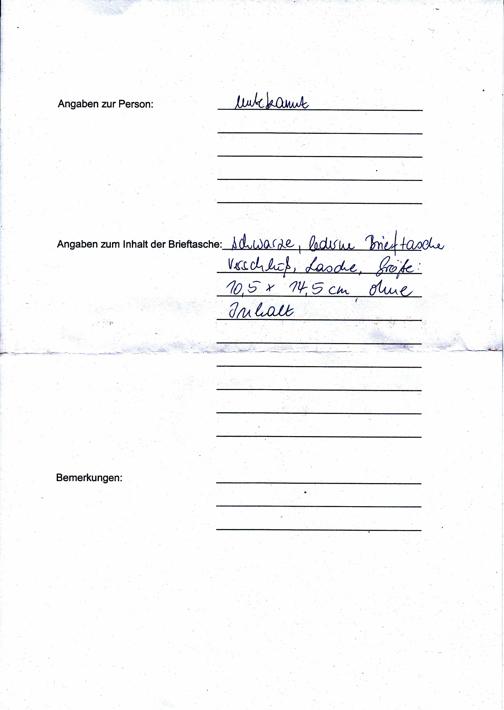 Angaben zur Person: unbekannt
Angaben zum Inhalt der Brieftasche: schwarze, lederne Brieftasche
Verschluß, Lasche, Größe:
10,5 x 14,5 cm, ohne
Inhalt
Bemerkungen: